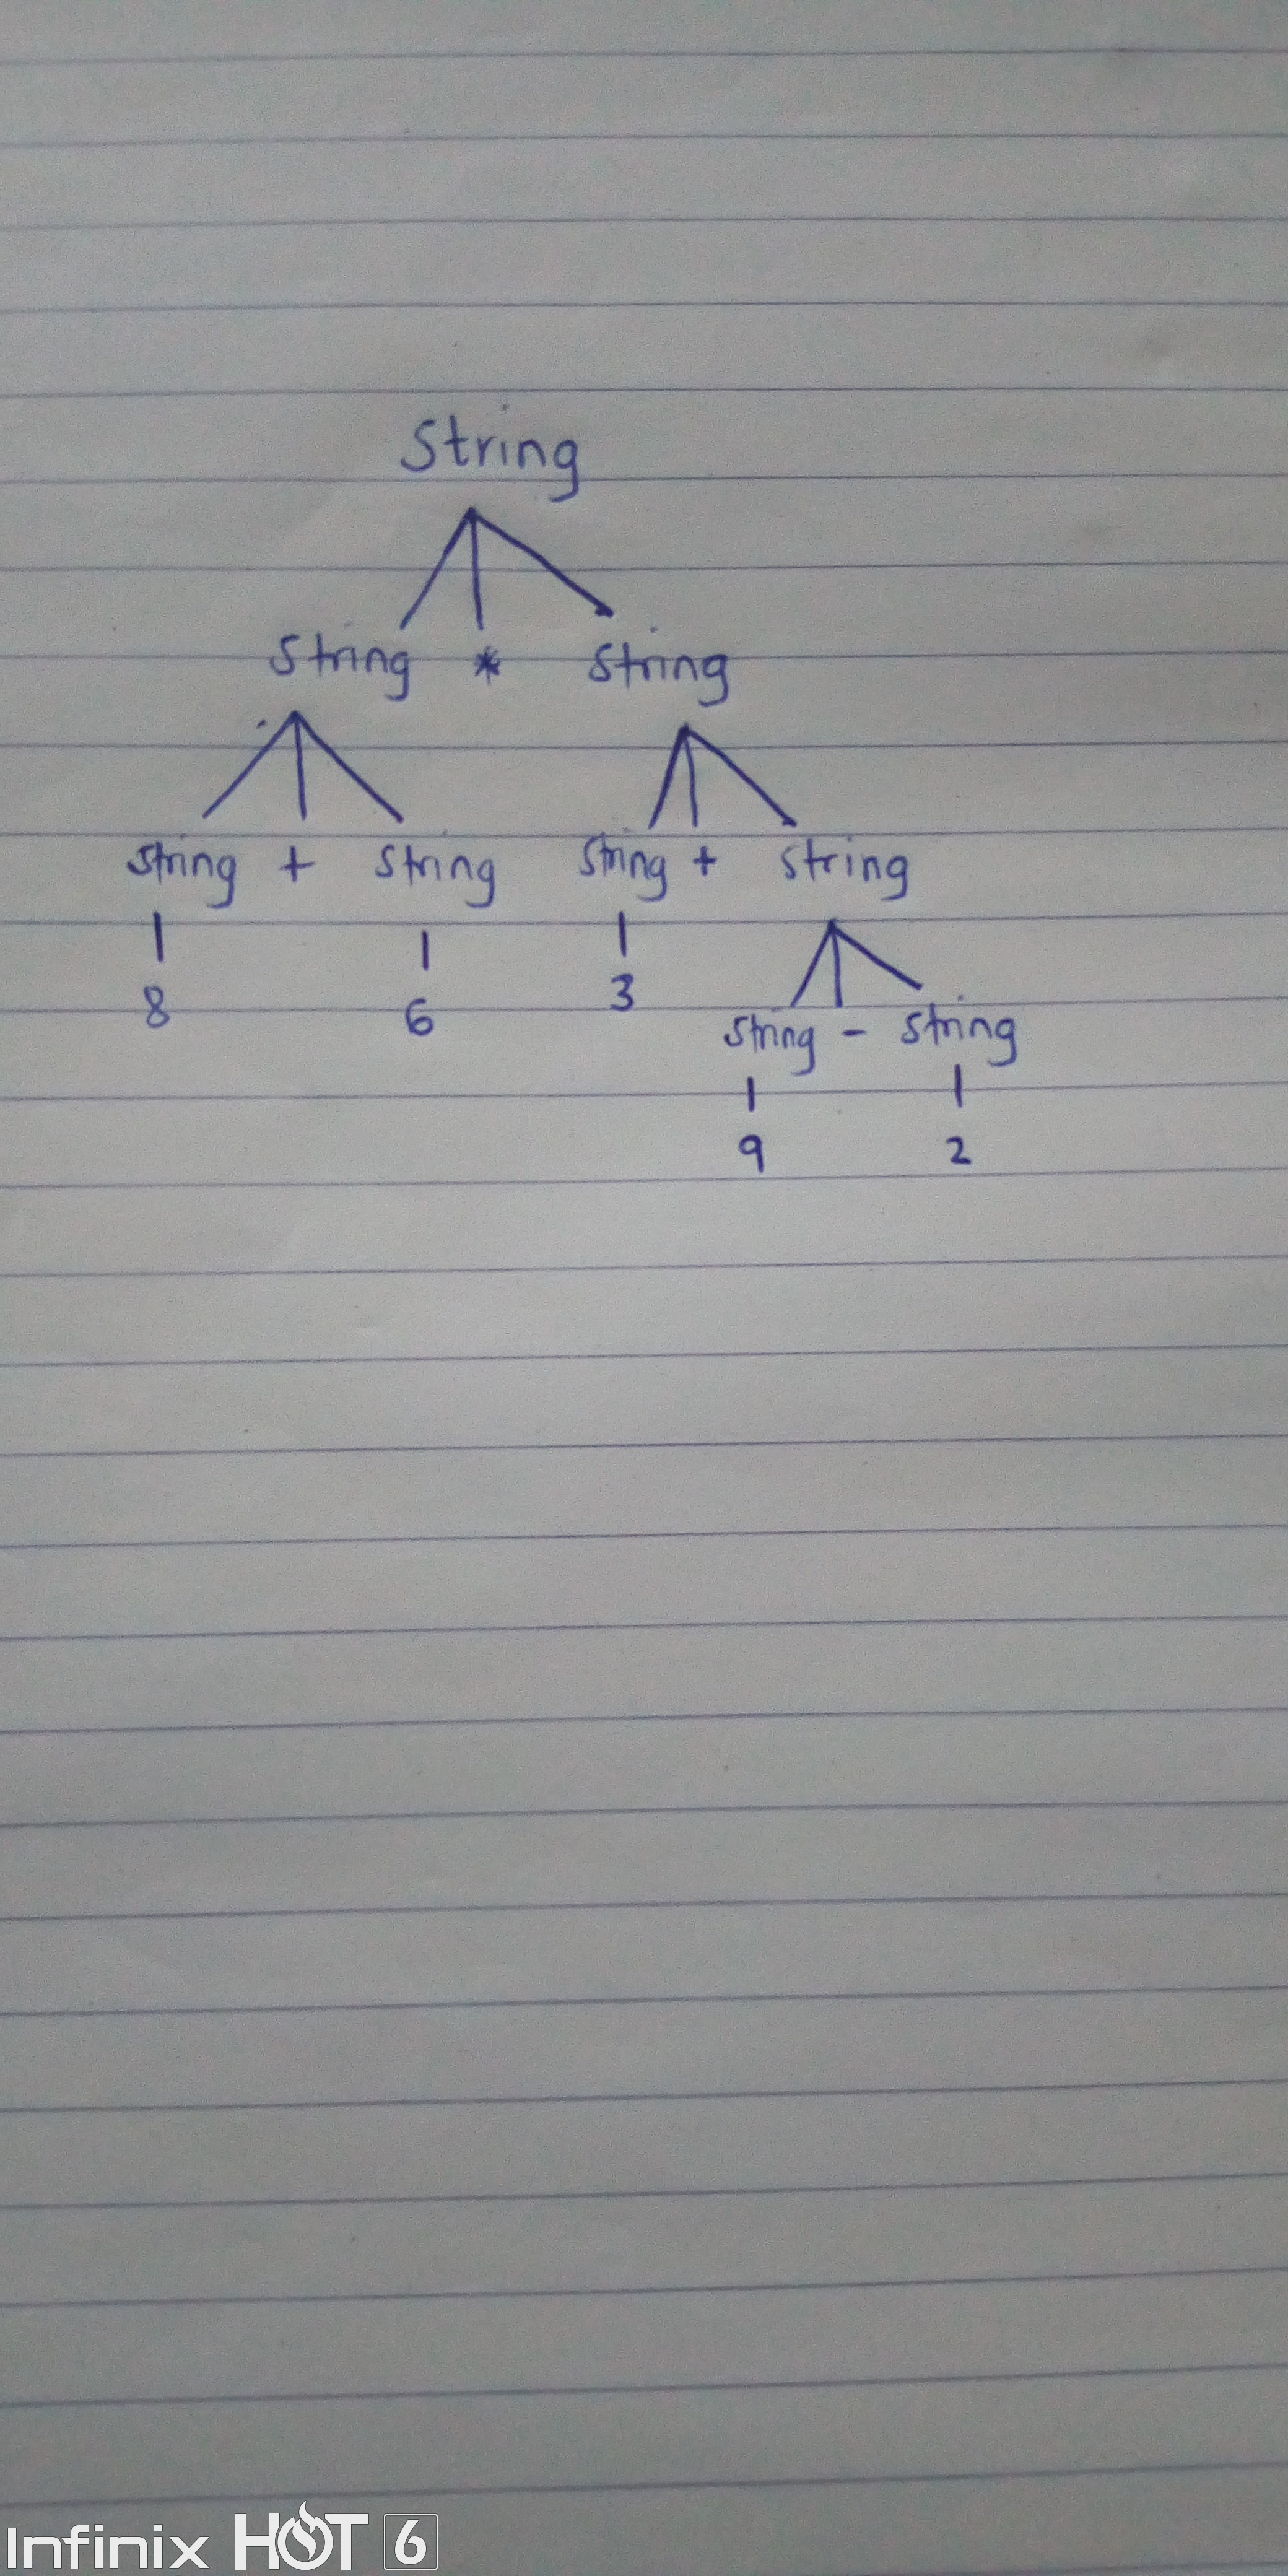 String
String * String
String + String String + String
8 6 3
String - String
9 2
Infinix HOT 6